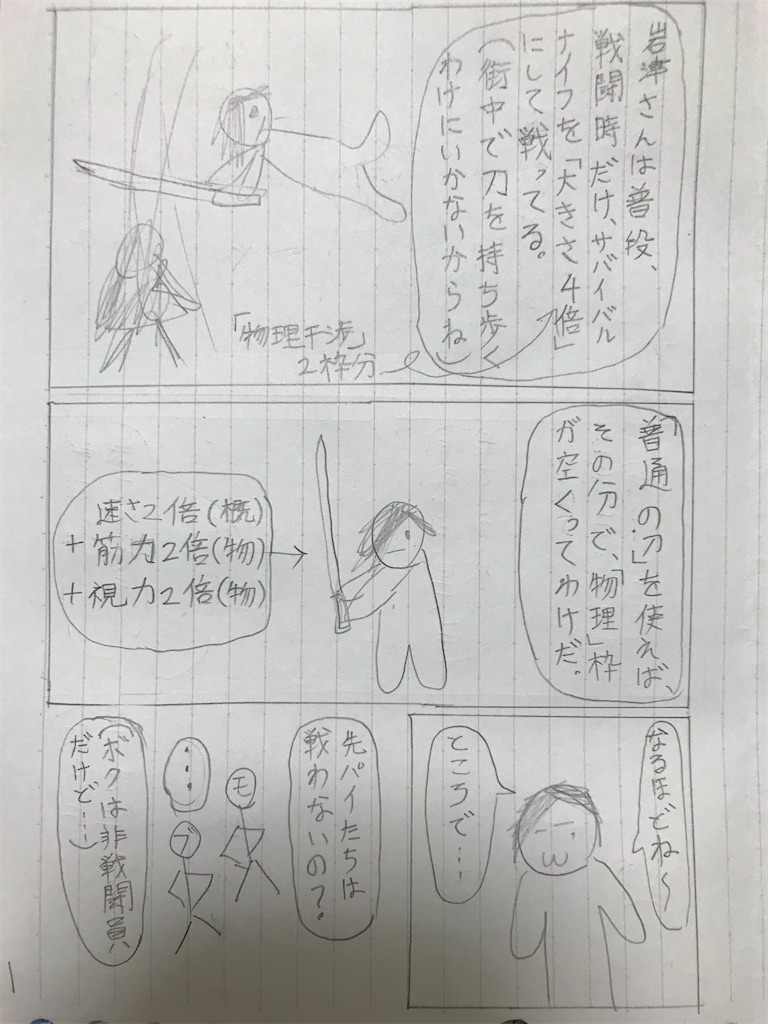 岩津さんは普段、
戦闘時だけ、サバイバル
ナイフを「大きさ4倍」
にして、戦ってる。
(街中で刀を持ち歩く
わけにいかないからね)
「物理干渉」
2枠分
「普通の刀」を使えば、
その分で、「物理」枠
が空くってわけだ。
速さ2倍(概)
+筋力2倍(物)
+視力2倍(物)
なるほどね〜
ところで…
先パイたちは
戦わないの?
モ
…
ブ
(ボクは非戦闘員
だけど……)
1